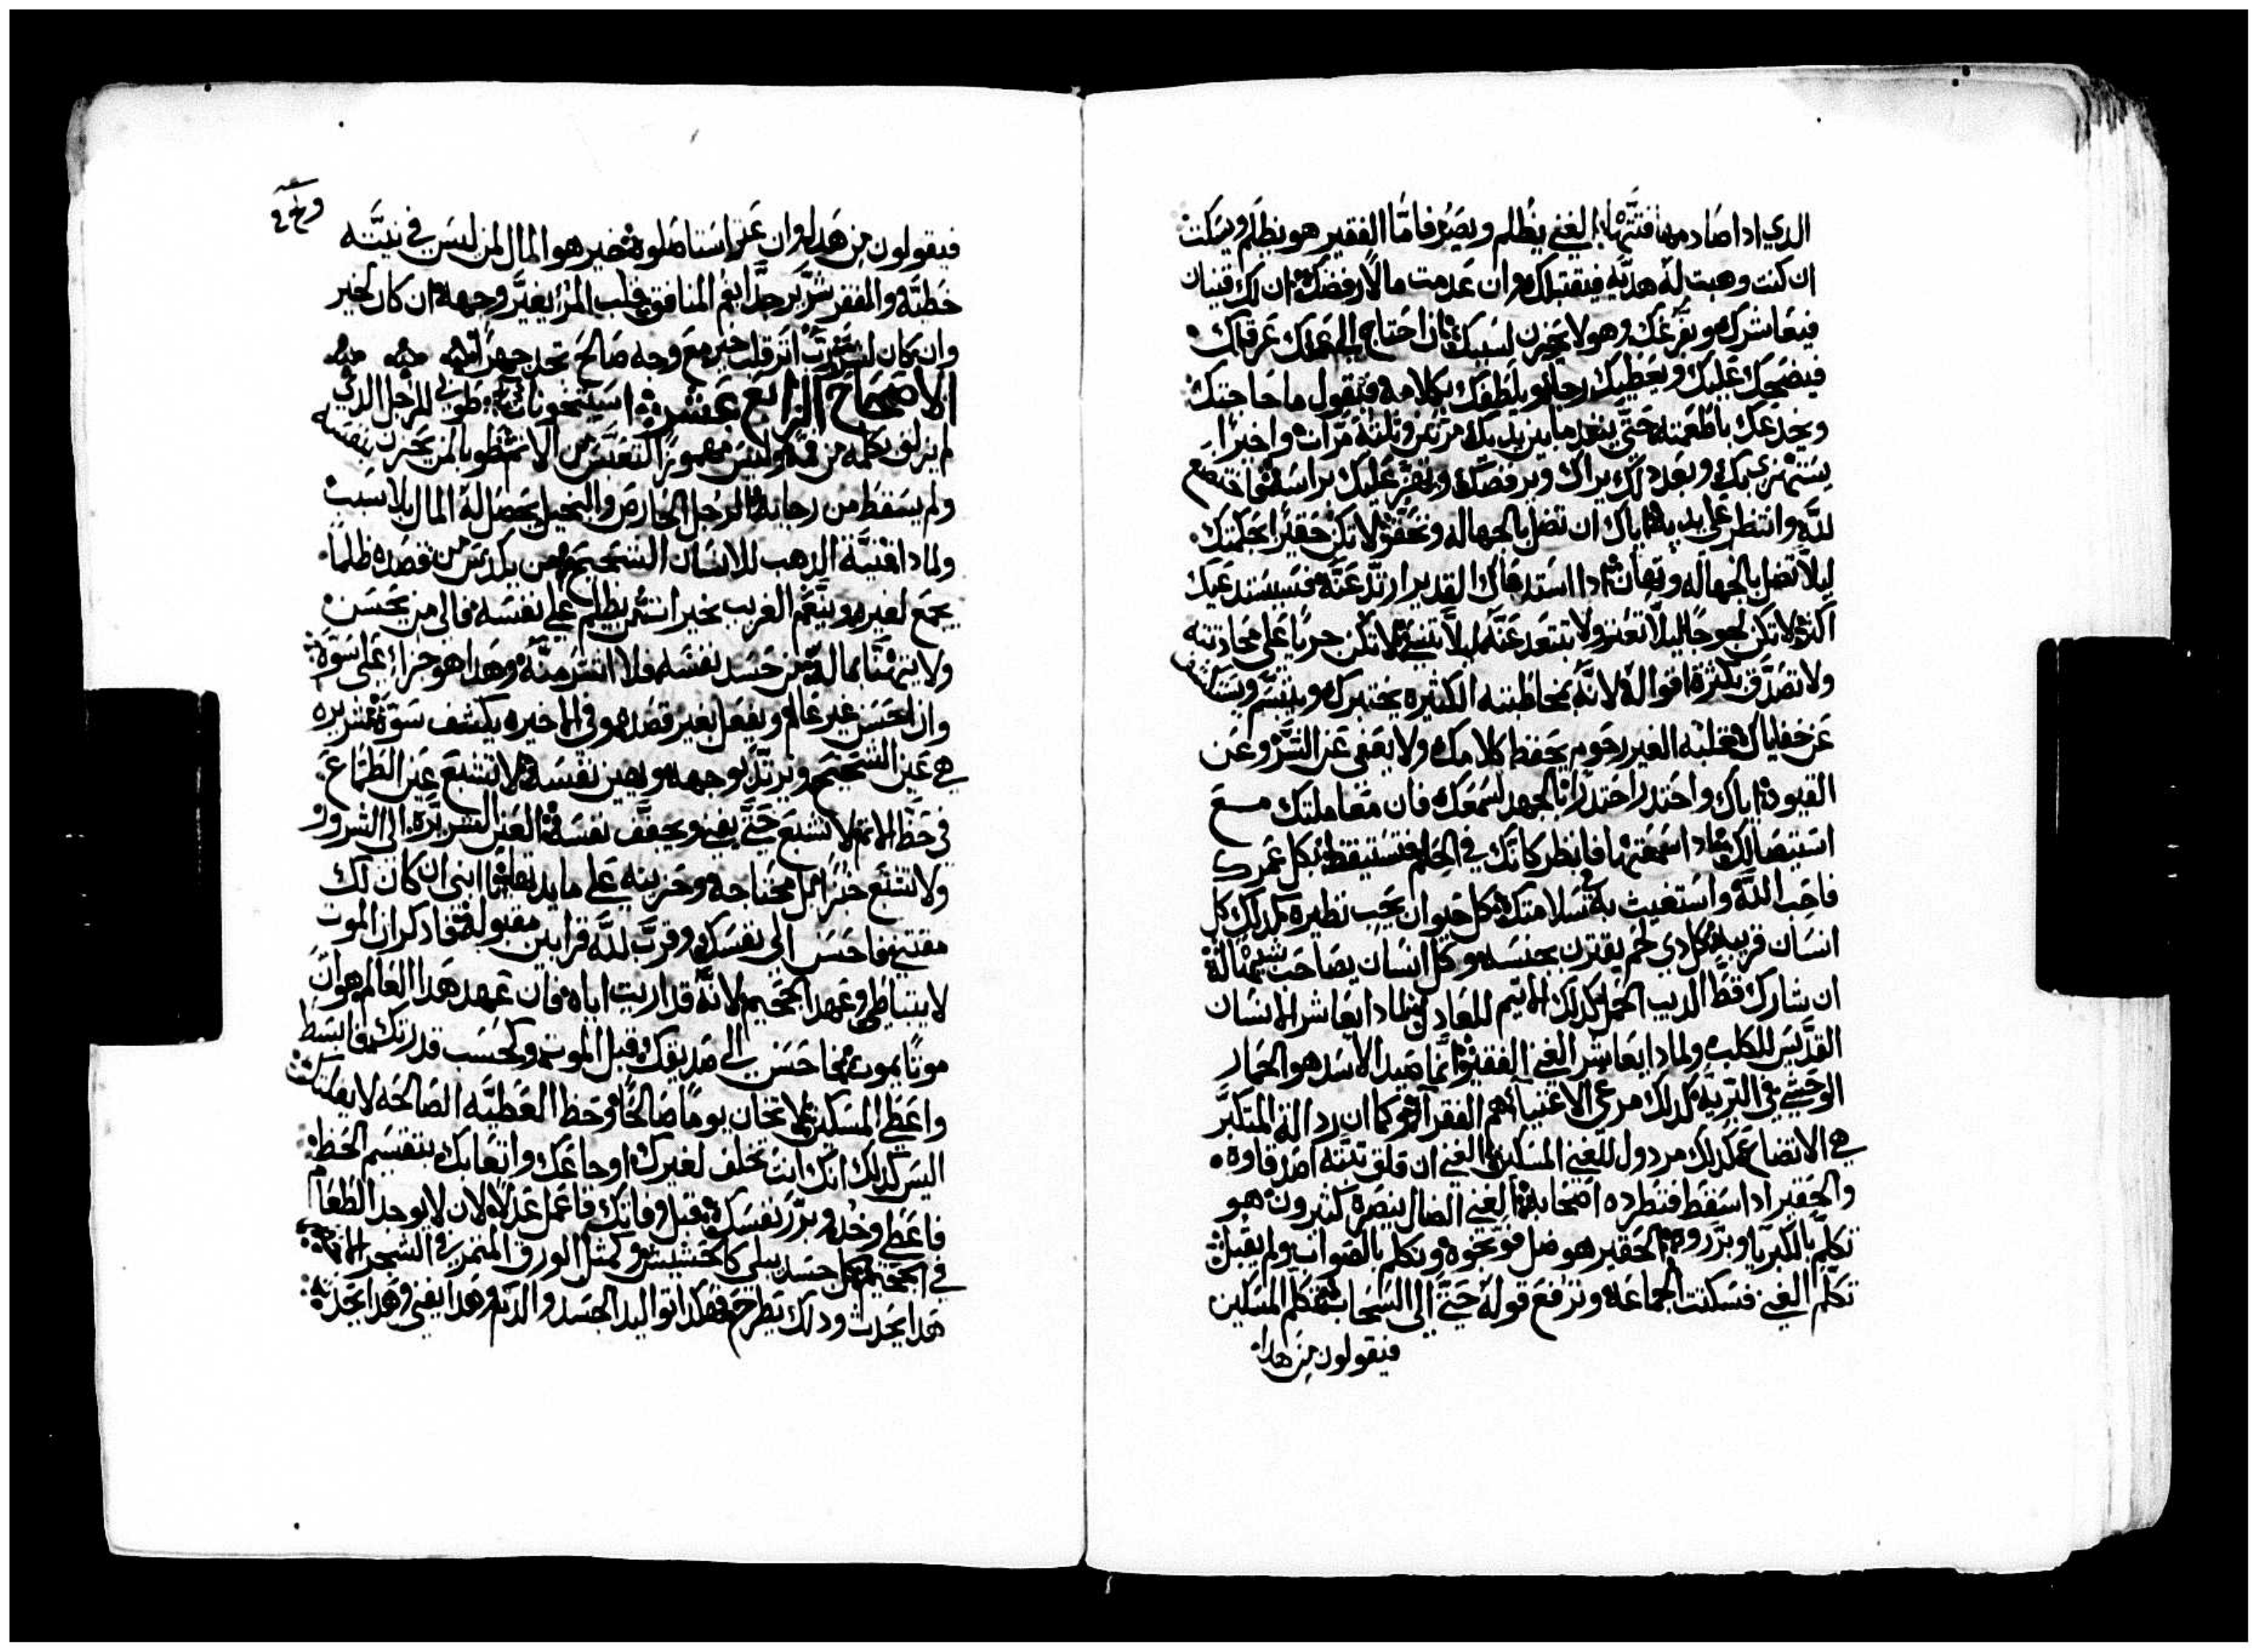 الدي ادا صادمها فتتها الغني يظلم ويصر فامّا الفقير هو يظلم ويسكت
ان كنت وهبت له هديه فيقتبلك وان عدمت مالا رفضك ان لك قنيان
فيعاشرك ويفرغك وهو لا يحزن لسببك ان احتاج الى عملك عرقلك
فيضحك عليك ويعطيك رجا ويلطفك بكلامه فيقول ما حاجتك
ويخدعك باطعمته حتى ينفد ما بين يديك مرتين وتلته مرات واخيرا
يستهزي بك وبعد دلك يراك ويرفضك وينغر عليك براسه اتضع
لله وانتظر على يديه اياك ان تضل بالجهاله وتحقر لا تكن حقيرا بحكمتك
ليلا تضل بالجهاله وتهان ادا استدعاك القدير ارتد عنه فسيستدعيك
اكتر لا تكن لجوجا ليلا تعنر ولا تبتعد عنه ليلا تنسي لا تكن حريا على محادتته
ولا تصدق بكترة اقواله لانه بمخاطبته الكثيره يختبرك ويتبسم ويستكشف
عن خفاياك قلبه الغير رحوم يحفظ كلامك ولا يعفي عن الشر وعن
القيود اياك واحتدر احتدارا بالجهد لسمعك فان معاملتك مع
استيصالك ادا سمعتها فانظر كانك في الحلم فتستيقظ بكل عمرك
فاحب الله واستغيث به في سلامتك كل حيوان يحب نظيره كدلك كل
انسان قريبه كل دي لحم يقترن بجنسه وكل انسان يصاحب شبيها له
ان شارك قط الديب الحمل كدلك الاتيم للعادل ولمادا يعاشر الانسان
القديس للكلب ولمادا يعاشر الغني الفقير وانما صيد الاسد هو الحمار
الوحشي في البريه كدلك مرعى الاغنيا هم الفقرا وكما ان ردالة المتكبر
هي الاتضاع كدلك مردول للغني المسكين الغني ان قلق تبته اصدقاوه
والحقير ادا سقط فتطرده اصحابه الغني الضال ينصره كثيرون هو
تكلم بالكبريا وبرروه الحقير هو ضل فوبخوه وتكلم بالصواب ولم يقبل
تكلم الغني فسكتت الجماعه وترفع قوله حتى الى السحاب تكلم المسكين
فيقولون من هدا
فيقولون من هدا وان عتر استاصلوه خير هو المال لمن ليس في نيته
خطيه والفقر شرير جدا بفم المنافق قلب المرء يغير وجهه ان كان لخير
وان كان لشر اتر قلب خير مع وجه صالح تجد جهدا
الاصحاح الرابع عشر استيخونات طوبى للرجل الدي
لم يزلق بكلمه من فمه وليس مقهورا لتعس من الاتم طوبا لمن يحزن بنفسه
ولم يسقط من رجايه الرجل الحارص والبخيل يحصل له المال بلا سبب
ولمادا قنية الدهب للانسان الشحيح من يكدس من قصده ظلما
يجمع لغيره ويتنعم الغريب بخيراته من يظلم على نفسه فالى من يحسن
ولا يتهنا بماله من حسد نفسه فلا اشر منه وهدا هو جزاء على سوه
وان احسن غير عالم ويفعل بغير قصد هو في الاخير يكشف سوه شريره
هي عين الشحيح ويرتد بوجهه ويهين نفسه لا تشبع عين الطماع
في حظ الاتم لا تشبع حتى يفني ويجفف نفسه العين الشريره الى الشرور
ولا تشبع خبزا بل محتاجه وحزينه على مايدتها يا ابني ان كان لك
مقتنى فاحسن الى نفسك وقرب لله قرابين مقبوله فادكر ان الموت
لا يتباطى وعهد الجحيم لانه قد اريت اياه فان عهد هدا العالم هو ان
موتا يموت فاحسن الى صديقك قبل الموت وكحسب قدرتك فابسط
واعطي المسكين لا تخان يوما صالحا وحظ العطيه الصالحه لا يفلتك
اليس كدلك انك انت تخلف لغيرك اوجاعك واتعابك بتقسيم الحظ
فاعطي وخد وبرر نفسك قبل وفاتك فاعمل عدلا لان لا يوجد الطعام
في الجحيم كل جسد يبلى كالحشيش وكمتل الورق المتمر في الشجر الاخضر
هدا يحدت ودلك يطرح فهكدا تواليد الجسد والدم هدا يفنى وهدا يجد